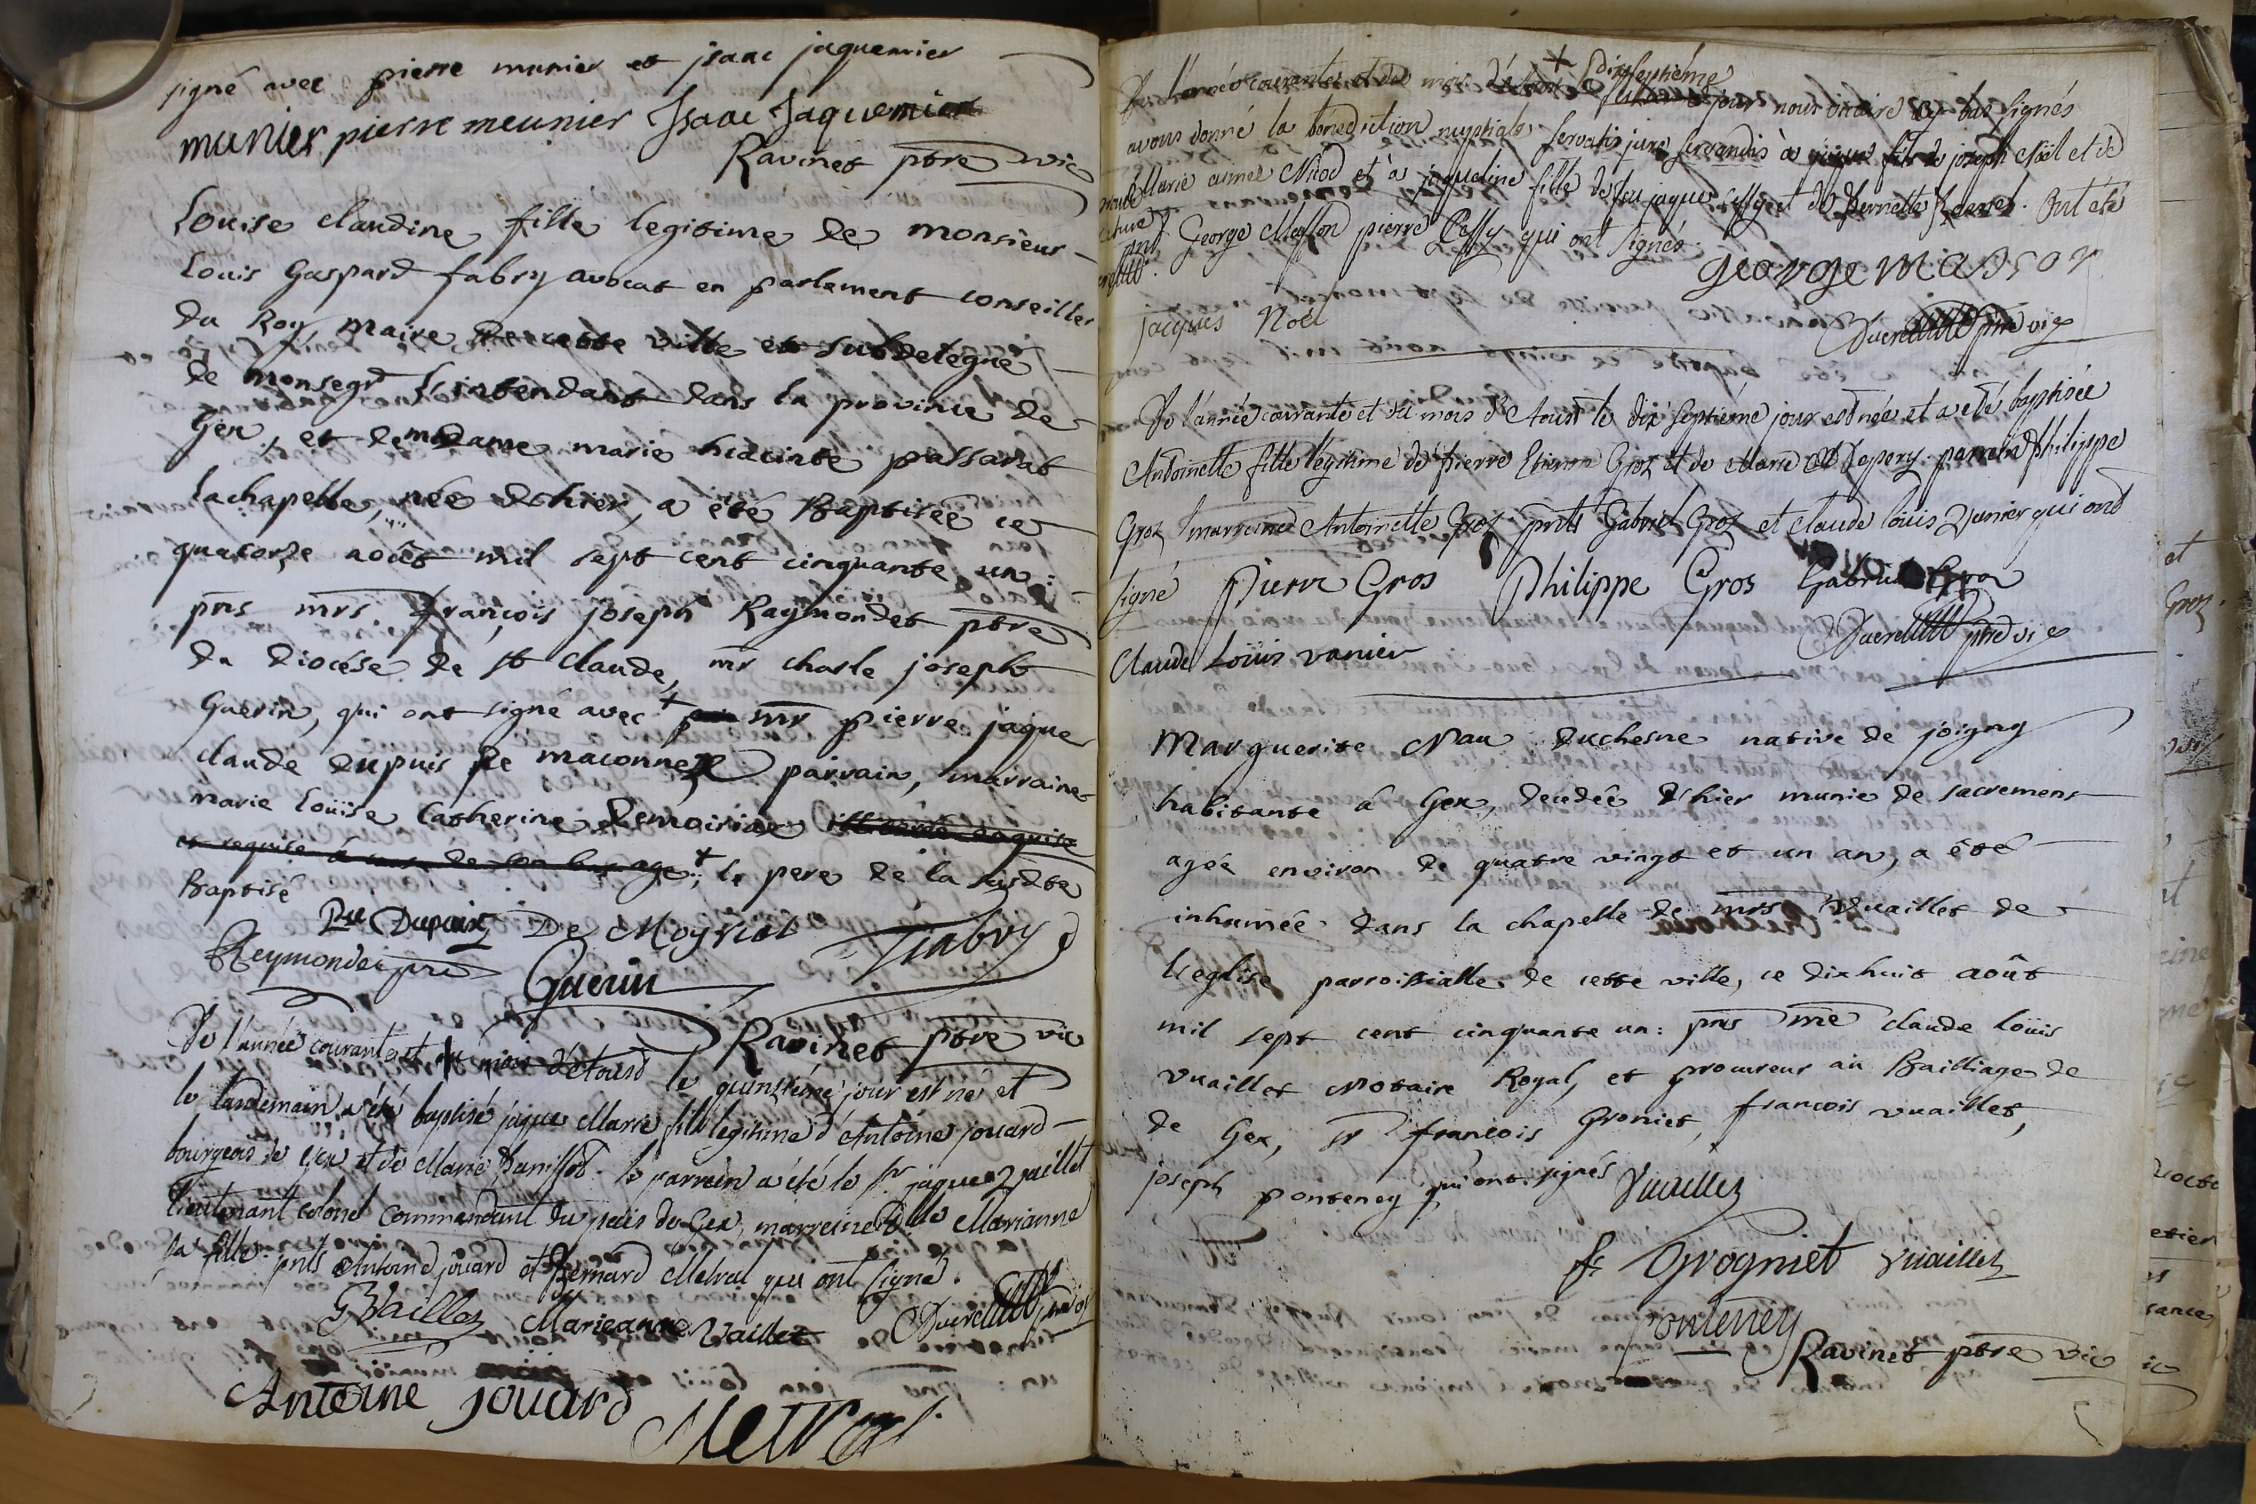 signé avec pierre munier et jsaac jaquemier
munier pierre meunier Jsaac Jaquemier
Ravinet ptre vic
Louise claudine fille legitime de monsieur
Louis Gaspard fabry avocat en parlement conseiller
du Roy, maire de cette ville et subdelegué
de monsegr L'intendant dans la province de
Gex, et de madame marie hiacinte passarat
Lachapelle, née d'hier, a été Baptisée ce
quatorze août mil sept cent cinquante un:
pns mrs. françois joseph Raymondet ptre
du diocése de st Claude, mr charle joseph
Guerin, qui ont signé avec + mr pierre jaque
claude dupuis de maconnex parrain, marraine
marie Loüise Catherine Demoiriat
et requise age + le pere de la susdte
Baptisé
Dupuis De Moyriat fabry
Reymondet pre Guerin
Ravinet ptre vic
De l'année courante et du mois d'Aoust le quinziéme jour est né et
le landemain a été baptisé jaque Marie fils legitime d'Antoine jouard
bourgeois de Gex et de Marie Panissod. le parrein a été le sr jaque Vuaillet
lieutenant colonel commandant du païs de Gex, marreine dlle Marianne
sa fille. pnts Antoine jouard et Bernard Metral qui ont signé.
Vaillet Marieanne Vaillet Ducret ptre vic
Antoine jouard Metral
De l'année courante et du mois d'Aoust + dixseptiéme jour nous vicaire cy bas signés
avons donné la benediction nuptiale servatis jure servandis à jaque fils de joseph Noël et de
Marie aimée Nicod et à jaqueline fille de feu jaque et de Pernette. Ont été
pnts George Masson pierre Passy qui ont signés.
george masson
jacques Noël
Ducret ptre vic
De l'année courante et du mois d'Aoust le dix septiéme jour est née et a été baptisée
Antoinette fille legitime de pierre Etienne Groz et de Marie Depery. parrein Philippe
Groz marreine Antoinette Groz. pnts Gabriel Groz et claude loüis Vanier qui ont
signé Pierre Gros Philippe Gros Gabriel Gros
Ducret ptre vic
Claude Loüis vanier
Marguerite Nau duchesne native de joigny
habitante à Gex, decedée d'hier munie de sacremens
agée environ de quatre vingt et un an, a été
inhumée dans la chapelle de mrs Vuaillet de
L'eglise parroissialle de cette ville, ce dixhuit août
mil sept cent cinquante un: pns me claude Loüis
vuaillet Notaire Royal, et procureur au Bailliage de
de Gex, sr françois Groniet, françois vuaillet,
joseph ponteney qui ont signés Vuaillet
fr Grogniet Vuaillet
ponteney
Ravinet ptre vic